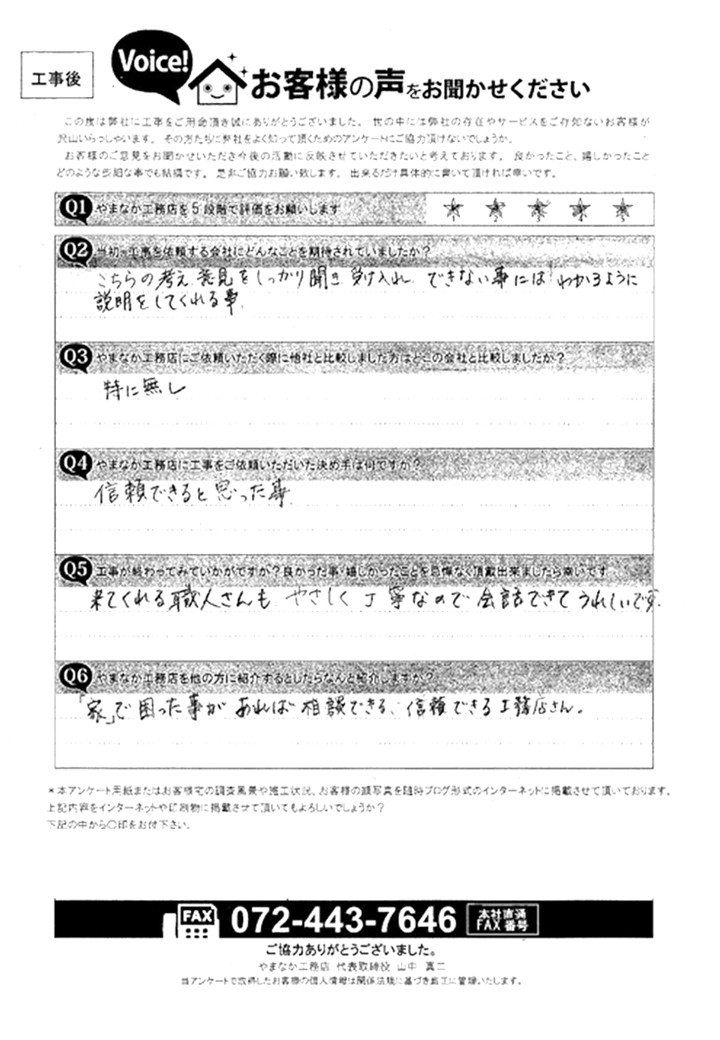 工事後
Voice!
お客様の声をお聞かせください
この度は弊社に工事をご用命頂き誠にありがとうございました。 世の中には弊社の存在やサービスをご存知ないお客様が
沢山いらっしゃいます。 その方たちに弊社をよく知って頂くためのアンケートにご協力頂けないでしょうか。
お客様のご意見をお聞かせいただき今後の活動に反映させていただきたいと考えております。 良かったこと、嬉しかったこと
どのような些細な事でも結構です。 是非ご協力お願い致します。 出来るだけ具体的に書いて頂ければ幸いです。
Q1 やまなか工務店を5段階で評価をお願いします ★ ★ ★ ★ ★
Q2 当初、工事を依頼する会社にどんなことを期待されていましたか?
こちらの考え 発見をしっかり聞き 受け入れ できない事には わかるように
説明をしてくれる事
Q3 やまなか工務店にご依頼いただく際に他社と比較しました方はどこの会社と比較しましたか?
特に無し
Q4 やまなか工務店に工事をご依頼いただいた決め手は何ですか?
信頼できると思った事
Q5 工事が終わってみていかがですか?良かった事・嬉しかったことを忌憚なく頂戴出来ましたら幸いです
来てくれる職人さんも やさしく 丁寧なので 会話できて うれしいです。
Q6 やまなか工務店を他の方に紹介するとしたらなんと紹介しますか?
「家」で困った事が あれば 相談できる、信頼できる工務店さん。
*本アンケート用紙またはお客様宅の調査風景や施工状況、お客様の顔写真を随時ブログ形式のインターネットに掲載させて頂いております。
上記内容をインターネットや印刷物に掲載させて頂いてもよろしいでしょうか?
下記の中から〇印をお付下さい。
FAX 072-443-7646 本社直通
FAX番号
ご協力ありがとうございました。
やまなか工務店 代表取締役 山中 真二
当アンケートで取得したお客様の個人情報は関係法規に基づき厳正に管理いたします。